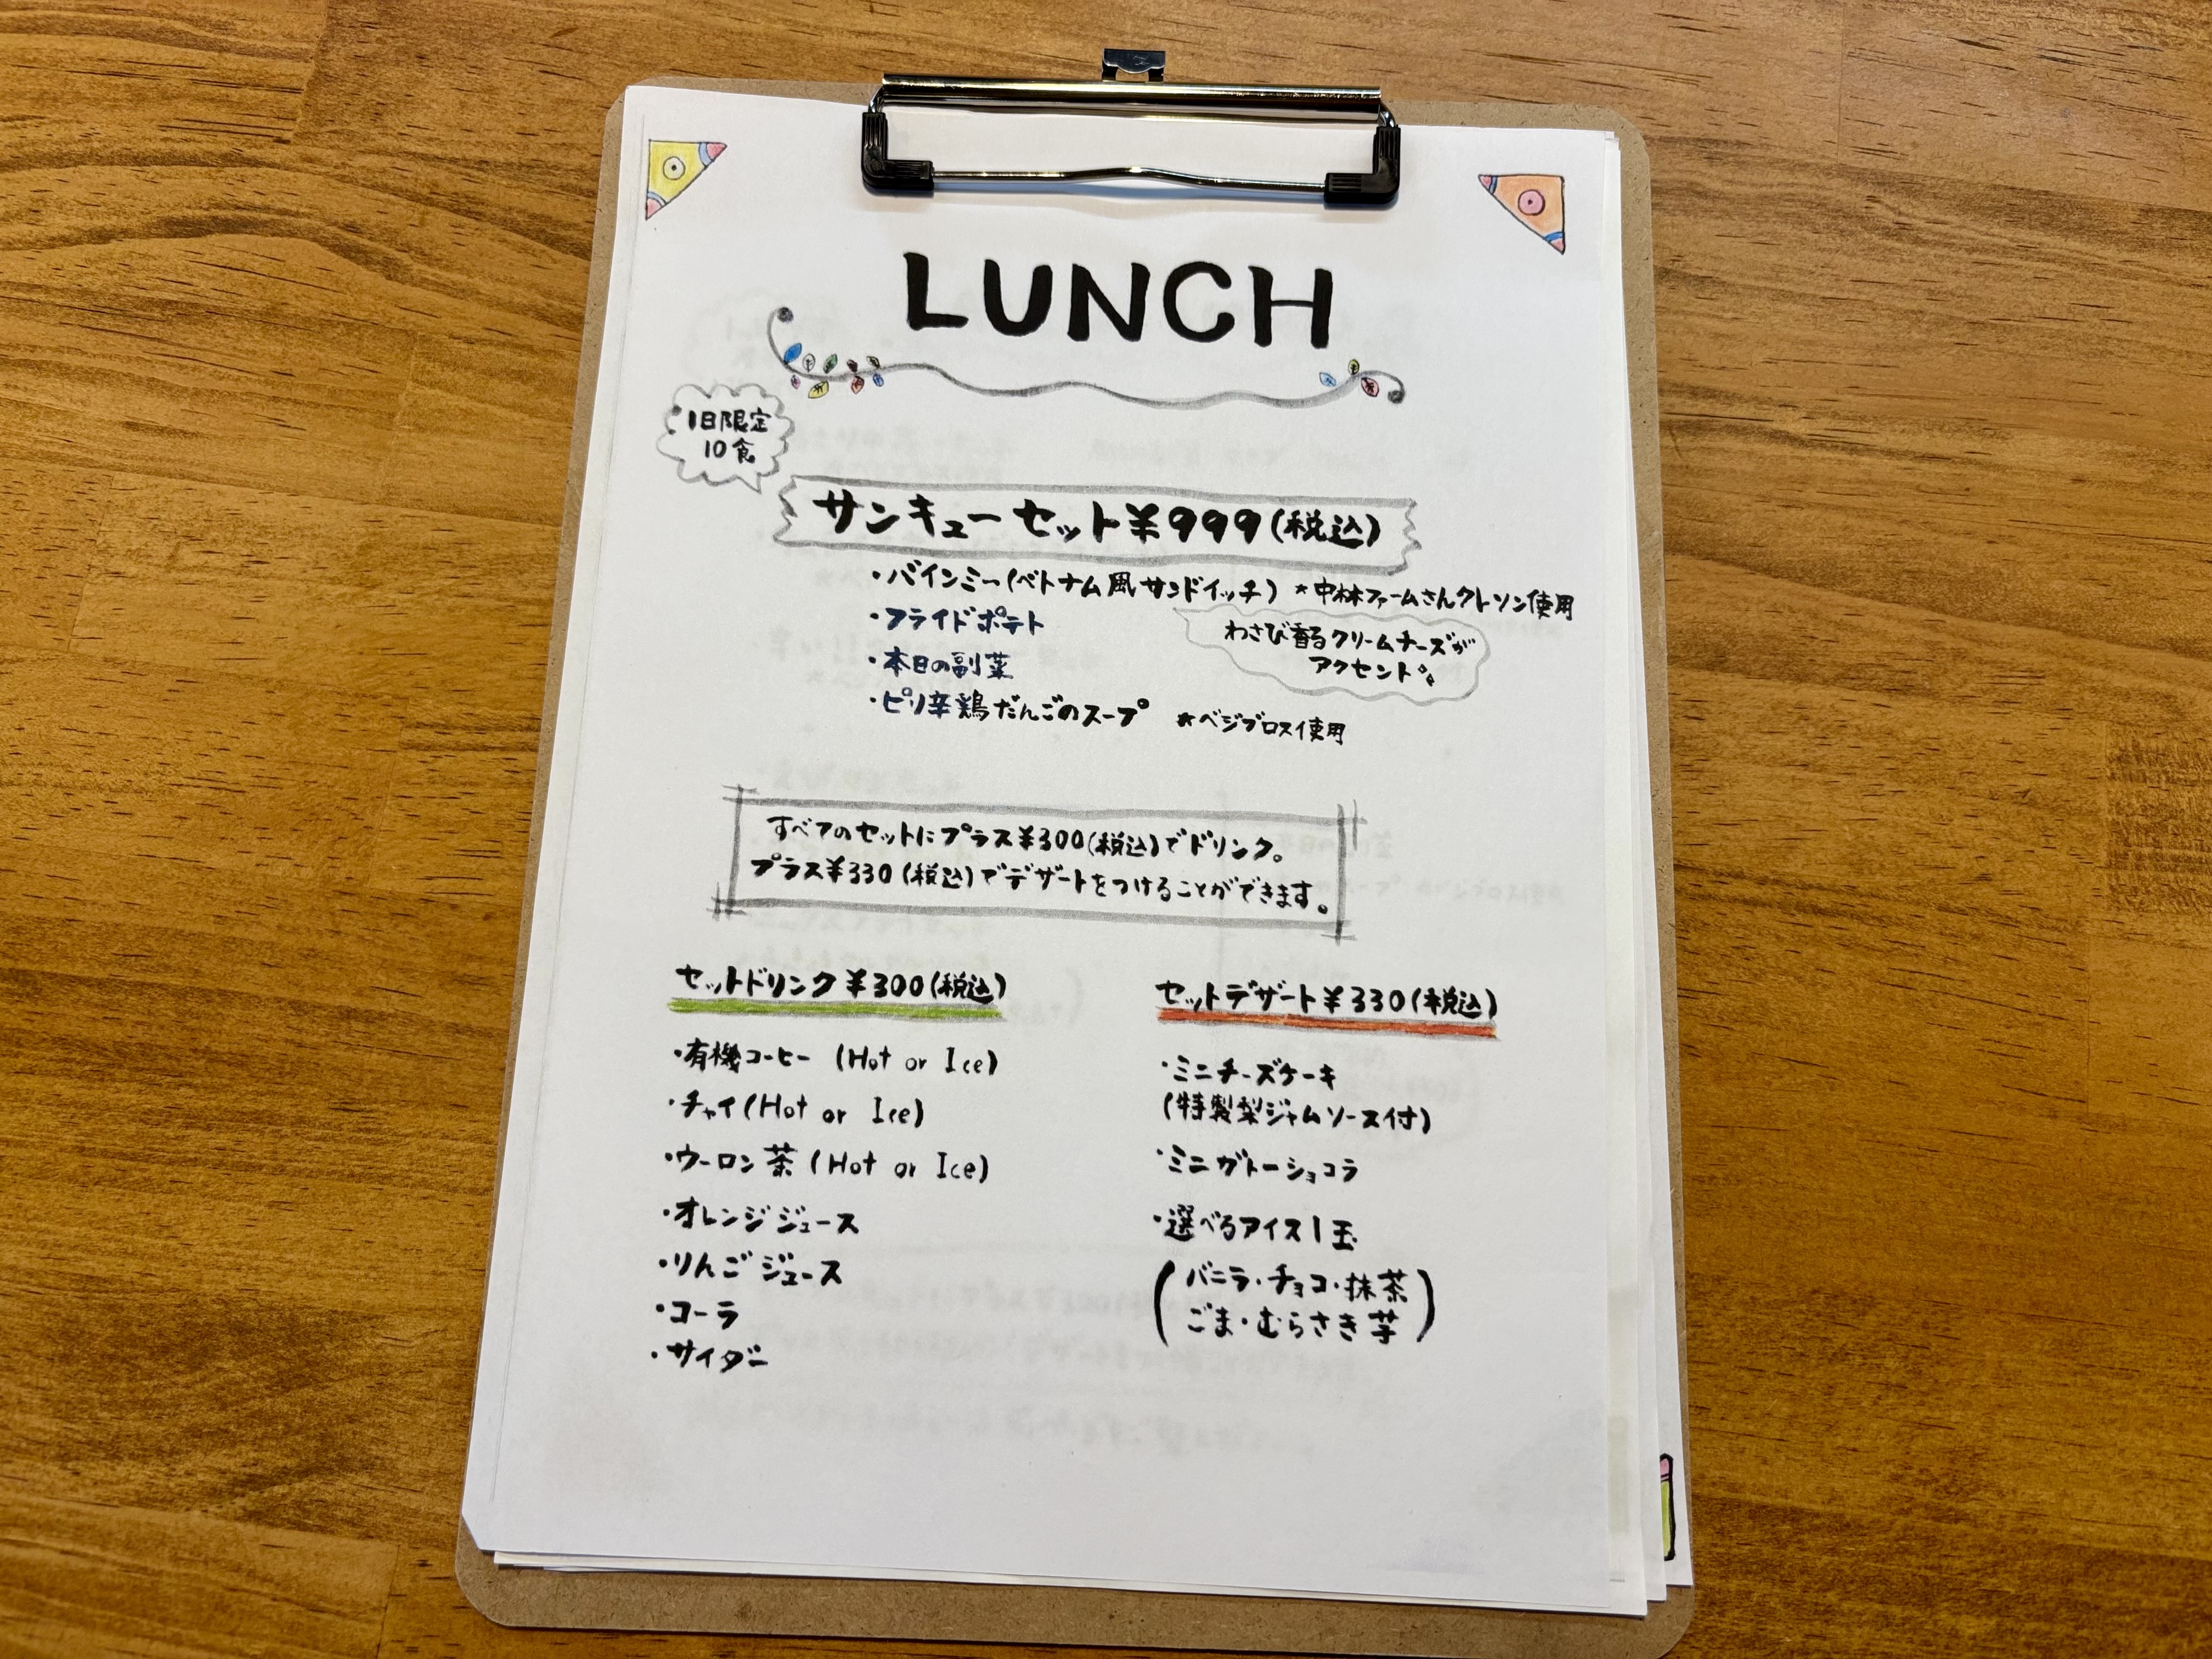 LUNCH
1日限定
10食
サンキューセット¥999(税込)
・バインミー(ベトナム風サンドイッチ) *中林ファームさんクレソン使用
・フライドポテト
わさび香るクリームチーズが
アクセント
・本日の副菜
・ピリ辛鶏だんごのスープ *ベジブロス使用
すべてのセットにプラス¥300(税込)でドリンク。
プラス¥330(税込)でデザートをつけることができます。
セットドリンク¥300(税込)
・有機コーヒー (Hot or Ice)
・チャイ(Hot or Ice)
・ウーロン茶 (Hot or Ice)
・オレンジジュース
・りんごジュース
・コーラ
・サイダー
セットデザート¥330(税込)
・ミニチーズケーキ
(特製梨ジャムソース付)
・ミニガトーショコラ
・選べるアイス1玉
(バニラ・チョコ・抹茶
ごま・むらさき芋)